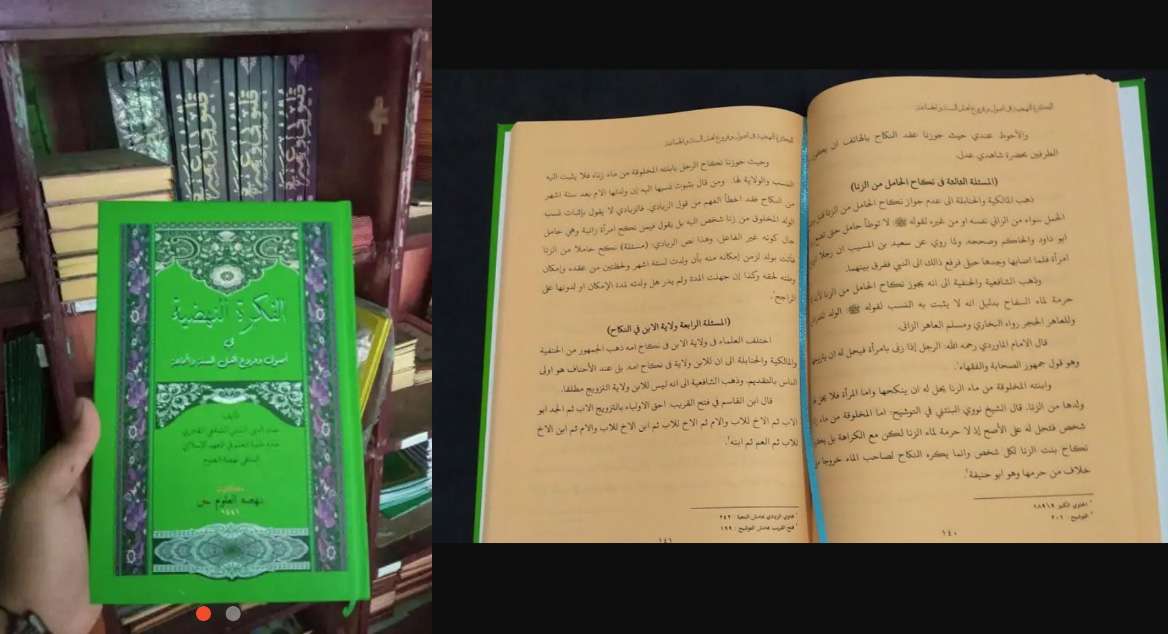 الفكرة النهضية
فى
أصول وفروع أهل السنة والجماعة
تأليف
نهضة العلوم
١٤٤١
الفكرة النهضية فى أصول وفروع أهل السنة والجماعة
والأحوط عندي حيث جوزنا عقد النكاح بالهاتف ان يحضر
الطرفين بحضرة شاهدي عدل.
(المسئلة الثالثة فى نكاح الحامل من الزنا)
ذهب المالكية والحنابلة الى عدم جواز نكاح الحامل من الزنا قبل
الحمل سواء من الزاني نفسه او من غيره لقوله ﷺ: لا توطأ حامل حتى تضع
ابو داود والحاكم وصححه. ولما روي عن سعيد بن المسيب ان رجلا
امرأة فلما اصابها وجدها حبلى فرفع ذالك الى النبي ففرق بينهما.
وذهب الشافعية والحنفية الى انه يجوز نكاح الحامل من الزنا لأنه لا
حرمة لماء السفاح بدليل انه لا يثبت به النسب لقوله ﷺ الولد للفراش
وللعاهر الحجر رواه البخاري ومسلم العاهر الزانى.
قال الامام الماوردي رحمه الله: الرجل إذا زنى بامرأة فيحل له ان يتزوجها
وهو قول جمهور الصحابة والفقهاء.
وابنته المخلوقة من ماء الزنا يحل له ان ينكحها واما المرأة فلا يحل لها
ولدها من الزنا. قال الشيخ نووي البنتني في التوشيح: اما المخلوقة من ماء زنا
شخص فتحل له على الأصح إذ لا حرمة لماء الزنا لكن مع الكراهة بل يكره
نكاح بنت الزنا لكل شخص وانما يكره النكاح لصاحب الماء خروجا من
خلاف من حرمها وهو ابو حنيفة
الحاوي الكبير ١٨٩\٩
التوشيح : ٢٠١
١٤٠
الفكرة النهضية فى أصول وفروع أهل السنة والجماعة
وحيث جوزنا نكاح الرجل بابنته المخلوقة من ماء زناه فلا يثبت اليه
النسب والولاية لها. ومن قال بثبوت نسبها اليه إن ولدتها الام بعد ستة اشهر
من النكاح فقد اخطأ الفهم من قول الزيادي. فالزيادي لا يقول بإثبات نسب
الولد المخلوق من زنا شخص اليه بل يقول فيمن نكح امرأة زانية وهي حامل
حال كونه غير الفاعل، وهذا نص الزيادي: (مسئلة) نكح حاملا من الزنا
فأتت بولد لزمن إمكانه منه بأن ولدت لستة اشهر ولحظتين من عقده وإمكان
وطئه لحقه وكذا إن جهلت المدة ولم يدر هل ولدته لمدة الإمكان او لدونها على
الراجح
(المسئلة الرابعة ولاية الابن في النكاح)
اختلف العلماء فى ولاية الابن فى نكاح امه. ذهب الجمهور من الحنفية
والمالكية والحنابلة الى ان للابن ولاية فى نكاح امه. بل عند الأحناف هو اولى
الناس بالتقديم. وذهب الشافعية الى انه ليس للابن ولاية التزويج مطلقا.
قال ابن القاسم في فتح القريب: احق الاولياء بالتزويج الاب ثم الجد ابو
الاب ثم الاخ للاب والام ثم الاخ للاب ثم ابن الاخ للاب والام ثم ابن الاخ
للاب ثم العم ثم ابنه
فتح القريب بهامش التوشيح : ١٩٩
١٤١